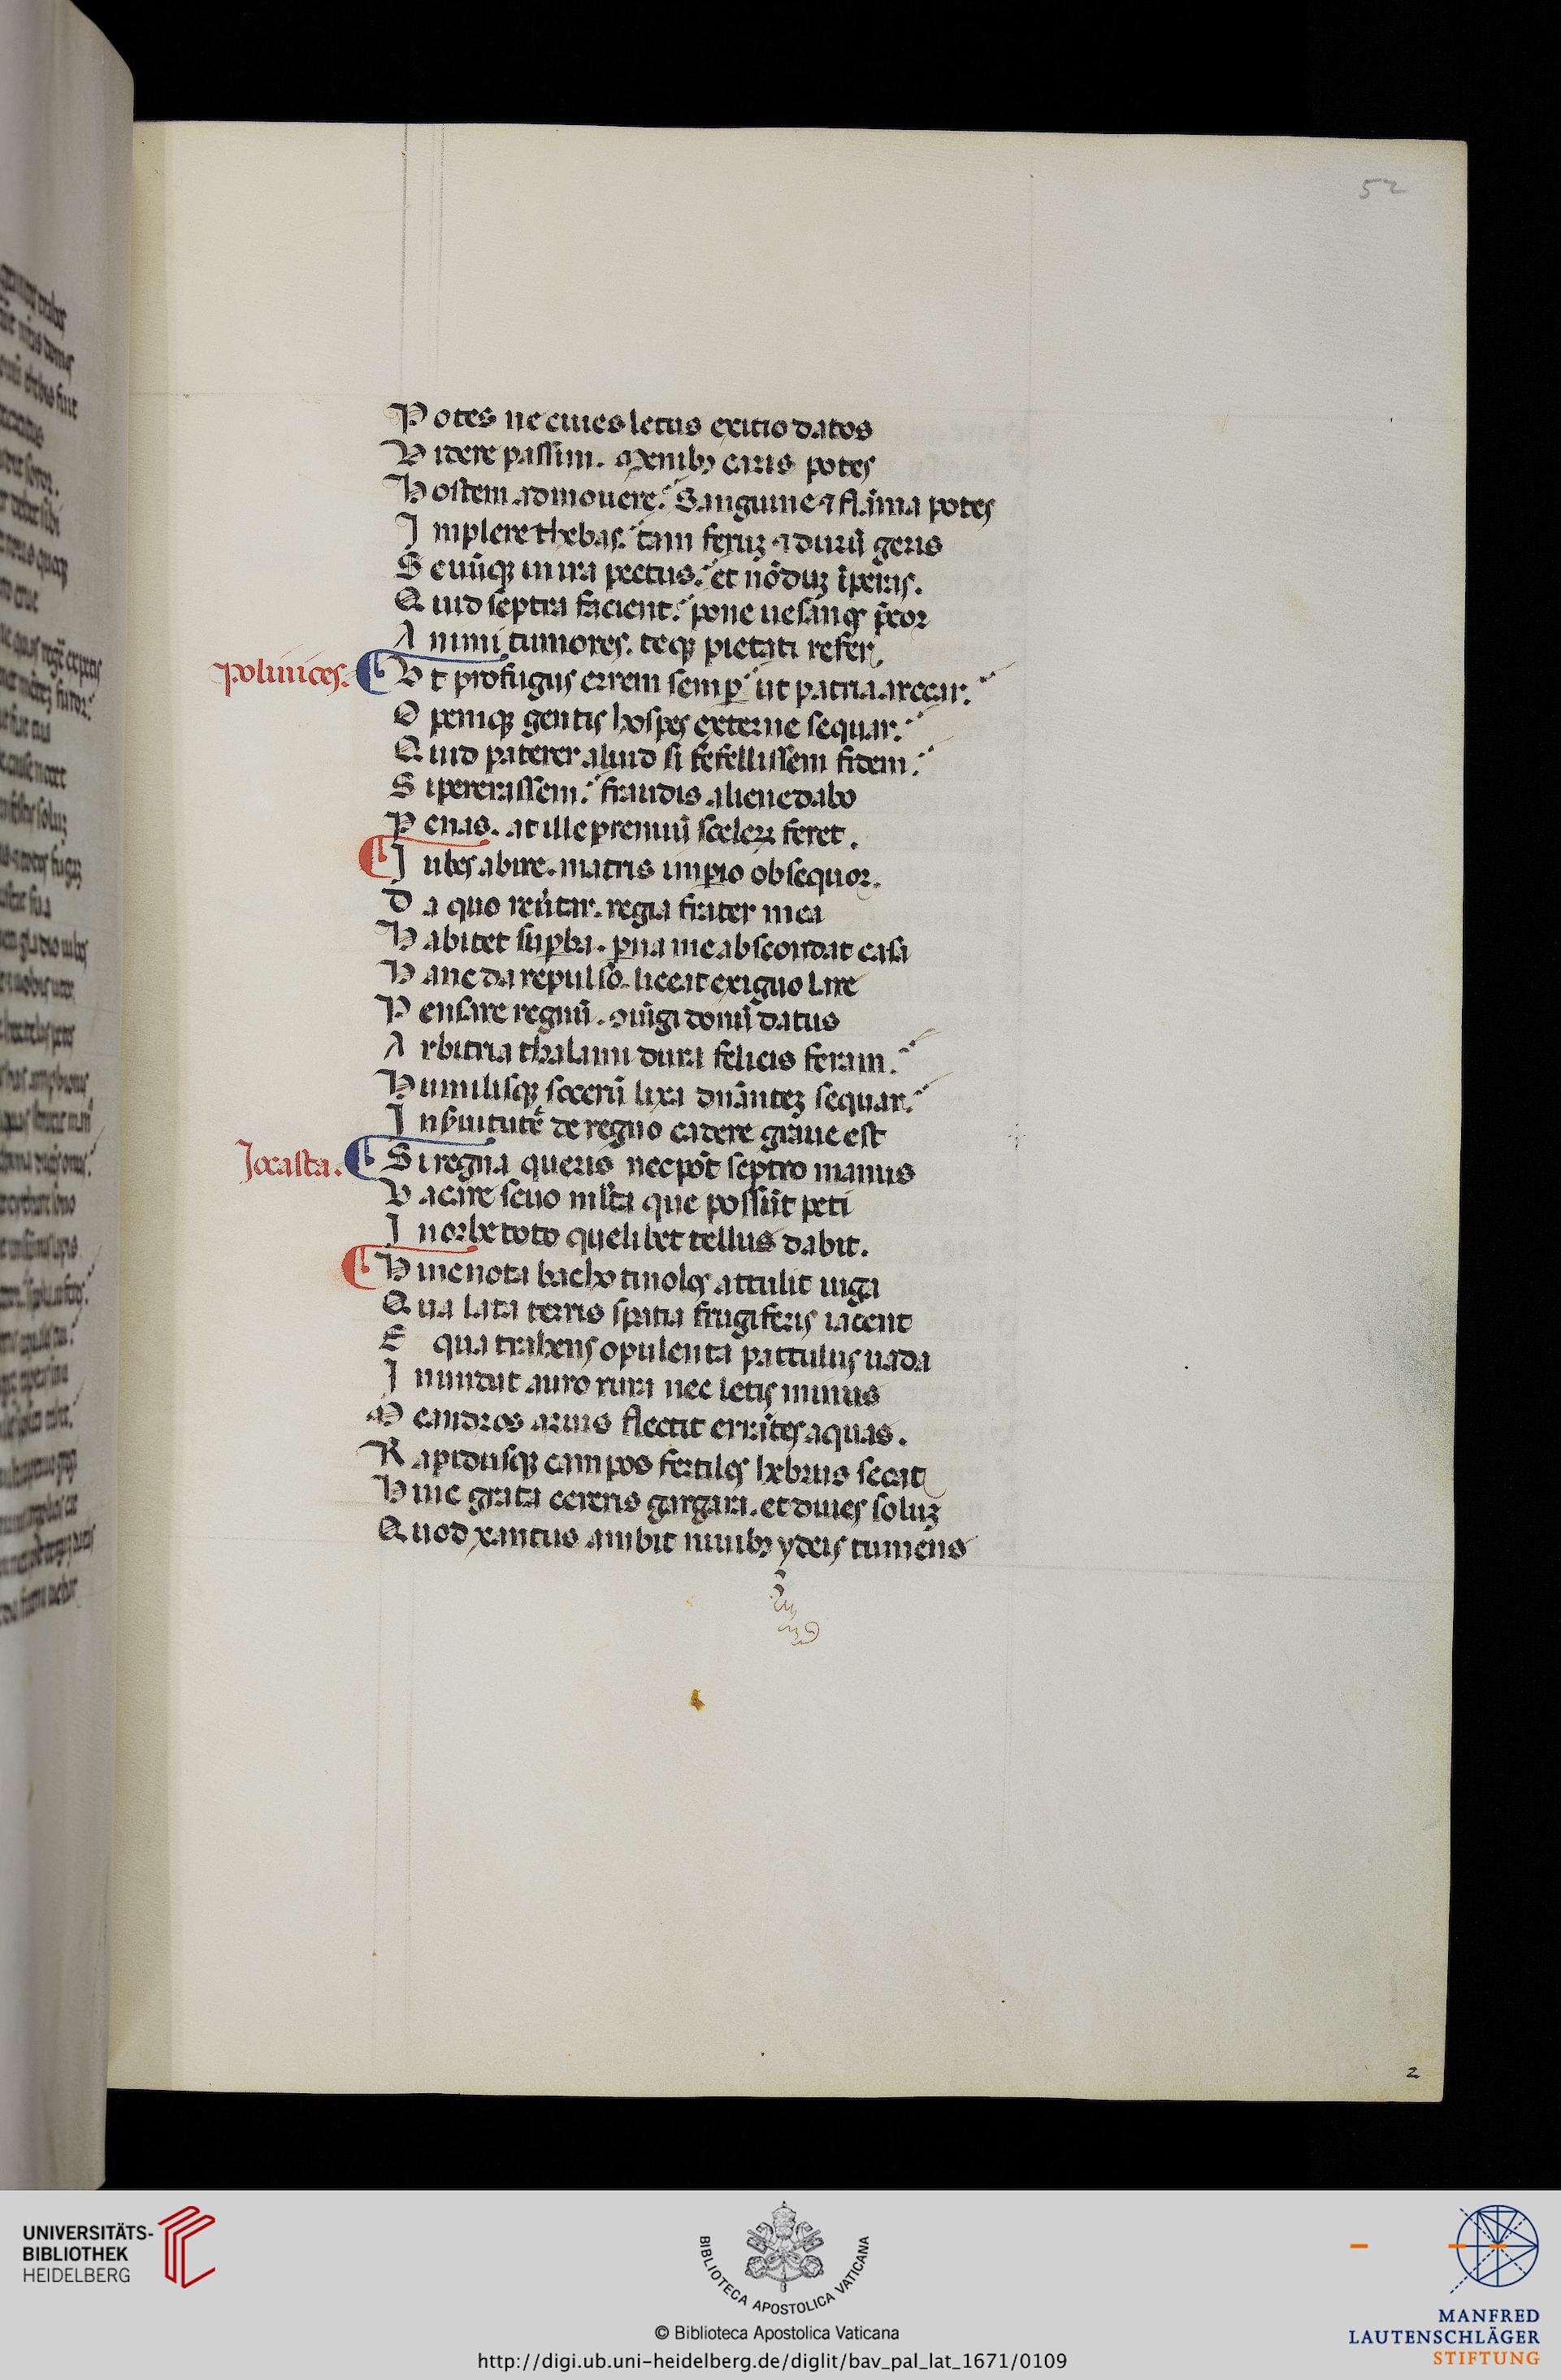 52
Potes ne ciues letus exitio datos
Videre passim. Menibꝫ caris potes
Hostem admouere. Sanguine ⁊ flāma potes
Implere thebas. tam feruꝫ ⁊ durū geris
Seuūqꝫ in ira pectus. et nōduꝫ īperas.
Quid septra facient. pone uesanos precor
Animi tumores. teqꝫ pietati refer.
Polinices. Vt profugus errem semꝑ ut patria arcear.
Opemqꝫ gentis hospes externe sequar.
Quid paterer aliud si fefellissem fidem.
Si perierassem. fraudis aliene dabo
Penas. at ille premiū sceleꝝ feret.
Iubes abire. matris imꝑio obsequor.
Da quo reūtar. regia frater mea
Habitet suꝑba. ꝑua me abscondat casa
Hanc da repulso. liceat exiguo lare
Pensare regnū. 9iūgi donū datus
Arbitria thalami dura felicis feram.
Humilisqꝫ socerū lixa dnānteꝫ sequar.
In ẜuitutē de regno cadere graue est
Jocasta. Si regna queris nec pōt septro manus
Vacare seuo mlta que possūt peti
In orbe toto quelibet tellus dabit.
Hinc nota bacho tmolos attulit iuga
Qua lata terris spatia frugiferis iacent
E qua trahens opulenta pattulus uada
Inundat auro rura nec letis minus
Meandros aruis flectit errātes aquas.
Rapidusqꝫ campos fertiles hebrus secat
Hinc grata cereris gargara. et diues soluꝫ
Quod xantus ambit niuibꝫ ydeis tumens
2
UNIVERSITÄTS-
BIBLIOTHEK
HEIDELBERG
BIBLIOTECA APOSTOLICA VATICANA
© Biblioteca Apostolica Vaticana
http://digi.ub.uni-heidelberg.de/diglit/bav_pal_lat_1671/0109
MANFRED
LAUTENSCHLÄGER
STIFTUNG